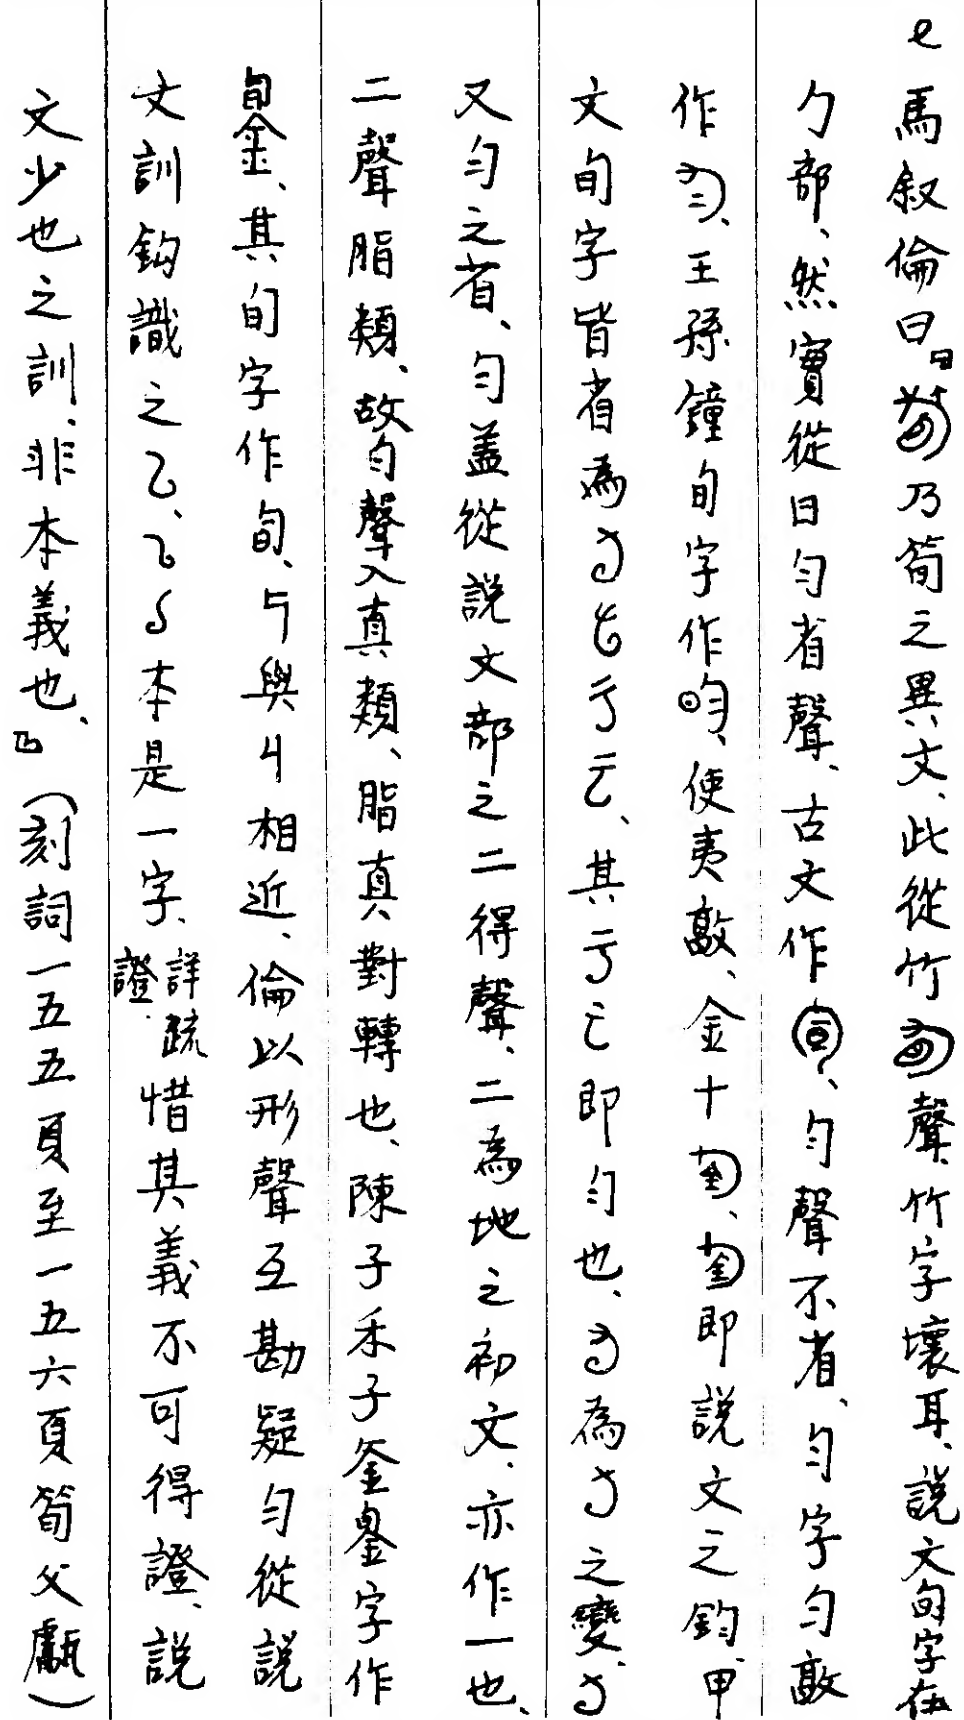 馬叙倫曰『乃筍之異文、此從竹聲、竹字壞耳、說文旬字在
勹部、然實從日勻省聲、古文作、勻聲不省、勻字勻敦
作、王孫鐘旬字作、使夷敦、金十、即說文之鈞、甲
文旬字皆省為、其即勻也、為之變、
又勻之省、勻蓋從說文部之二得聲、二為地之初文、亦作一也、
二聲脂類、故勻聲入真類、脂真對轉也、陳子禾子釜字作
其旬字作旬、與相近、倫以形聲互勘疑勻從說
文訓鈎識之、本是一字、詳疏證、惜其義不可得證、說
文少也之訓、非本義也、』（刻詞一五五頁至一五六頁筍父甗）